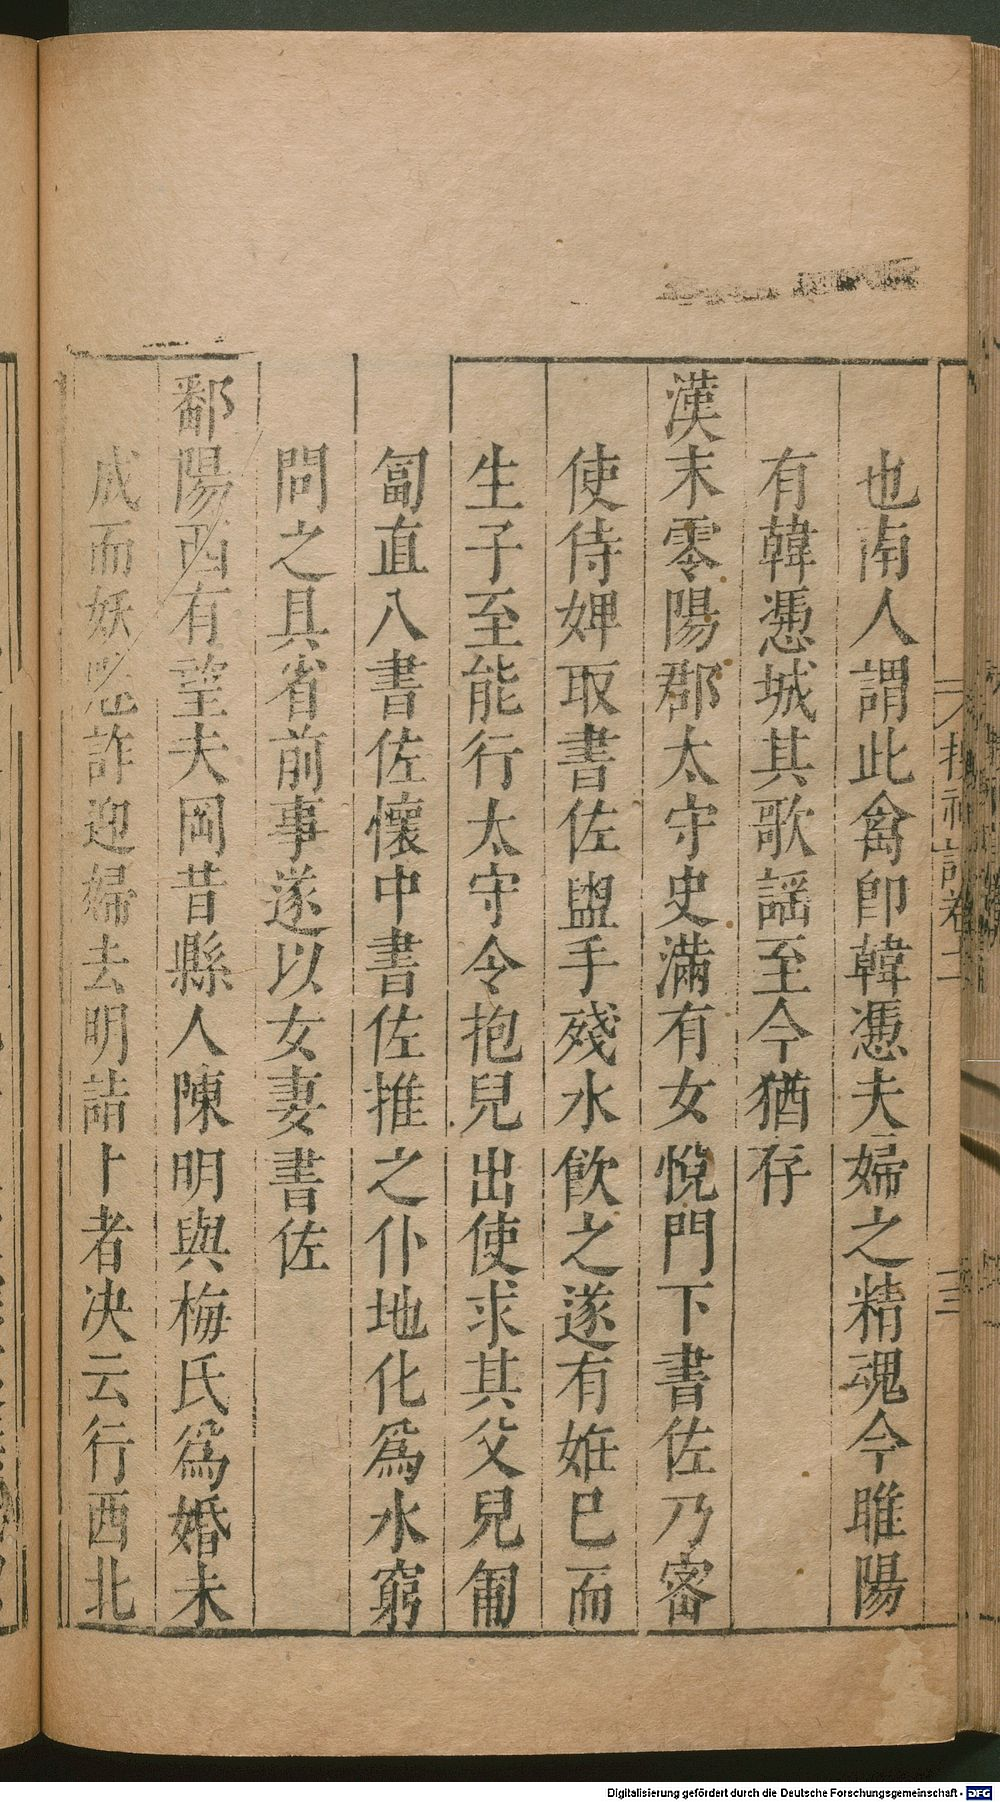 也南人謂此禽卽韓憑夫婦之精魂今睢陽
有韓憑城其歌謡至今猶存
漢末零陽郡太守史滿有女悅門下書佐乃密
使侍婢取書佐盥手殘水飮之遂有姙巳而
生子至能行太守令抱兒出使求其父兒匍
匐直入書佐懷中書佐推之仆地化爲水窮
問之具省前事遂以女妻書佐
鄱陽西有望夫岡昔縣人陳明與梅氏爲婚未
成而妖魅詐迎婦去明詰卜者决云行西北
搜神記卷二
三
Digitalisierung gefördert durch die Deutsche Forschungsgemeinschaft - DFG